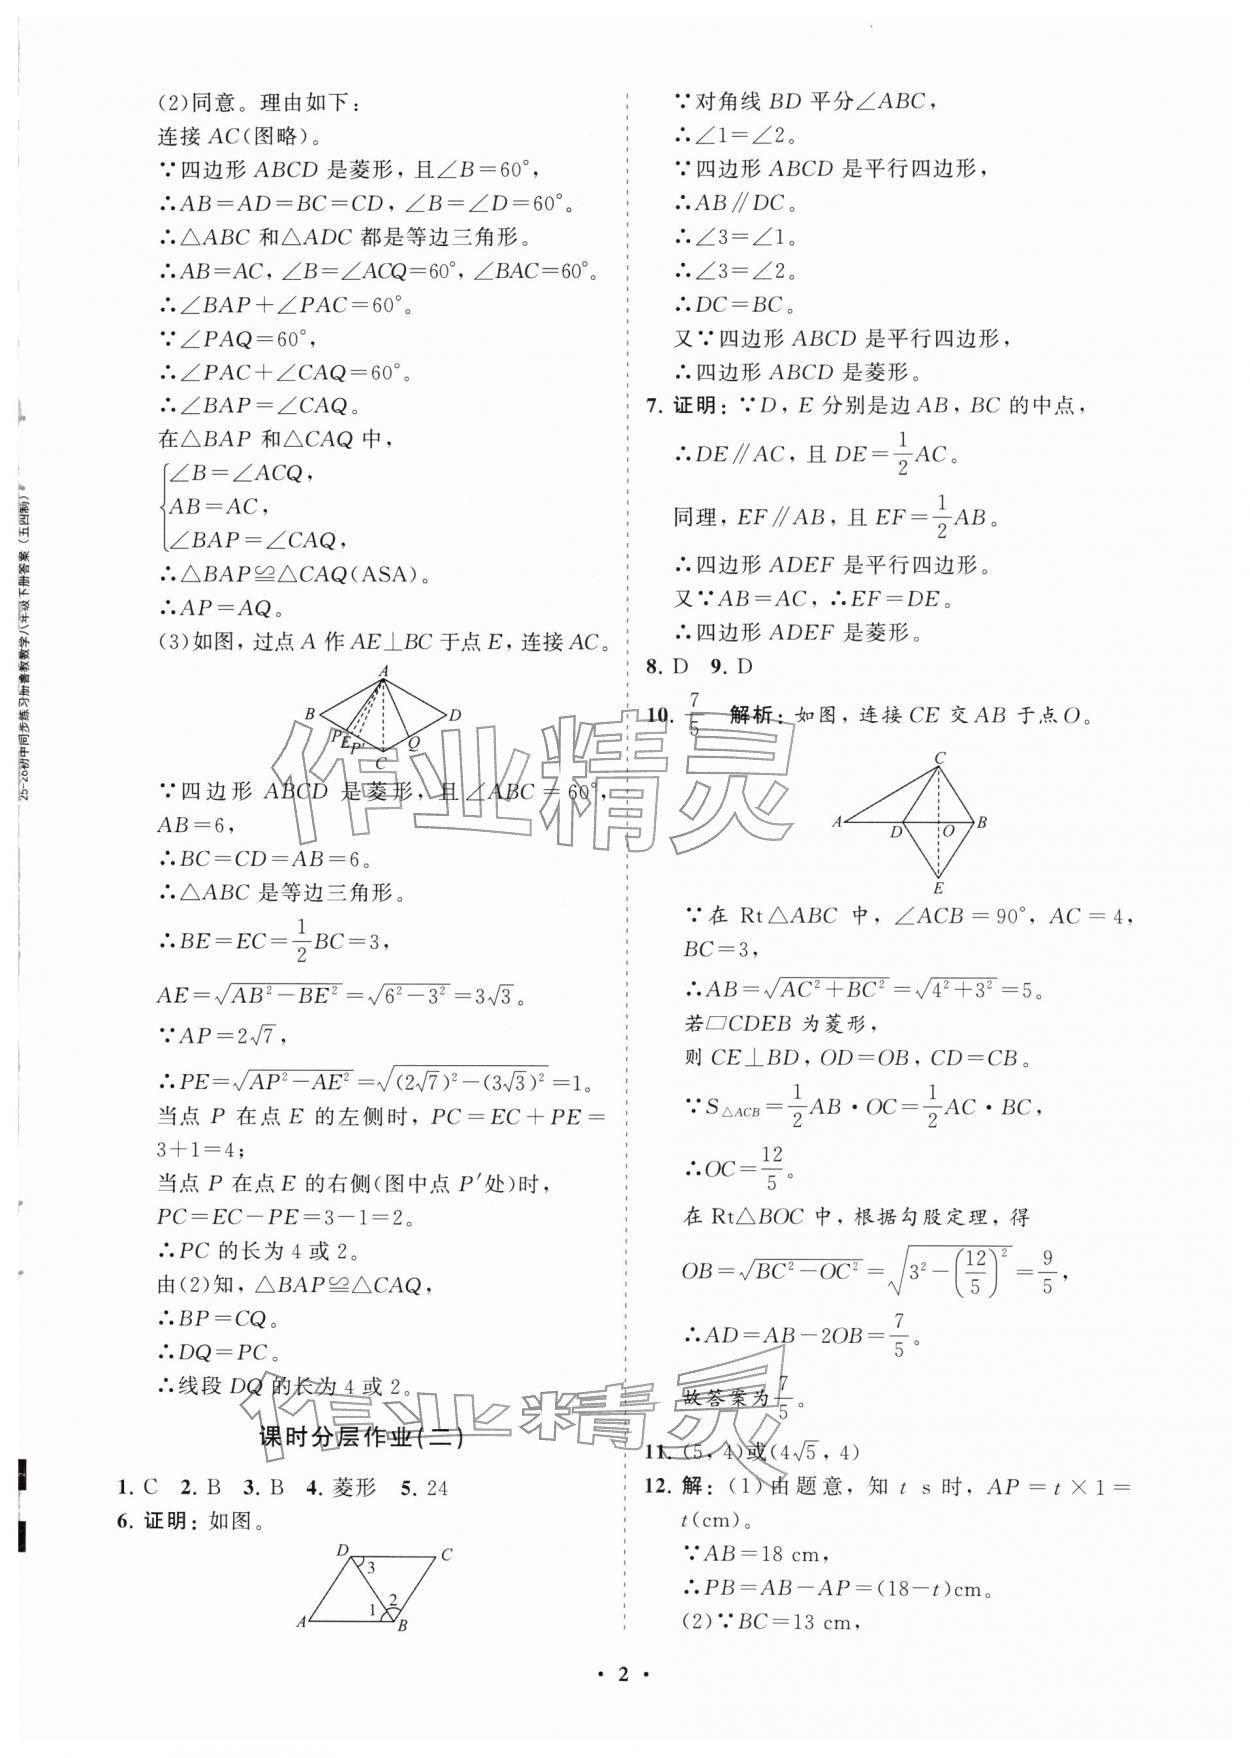 (2)同意。理由如下：
连接 AC(图略)。
∵四边形 ABCD 是菱形，且∠B=60°，
∴AB=AD=BC=CD，∠B=∠D=60°。
∴△ABC 和△ADC 都是等边三角形。
∴AB=AC，∠B=∠ACQ=60°，∠BAC=60°。
∴∠BAP+∠PAC=60°。
∵∠PAQ=60°，
∴∠PAC+∠CAQ=60°。
∴∠BAP=∠CAQ。
在△BAP 和△CAQ 中，
∠B=∠ACQ，
AB=AC，
∠BAP=∠CAQ，
∴△BAP≌△CAQ(ASA)。
∴AP=AQ。
(3)如图，过点 A 作 AE⊥BC 于点 E，连接 AC。
A
B D
P E P′ Q
C
∵四边形 ABCD 是菱形，且∠ABC=60°，
AB=6，
∴BC=CD=AB=6。
∴△ABC 是等边三角形。
∴BE=EC=1/2BC=3，
AE=√(AB²−BE²)=√(6²−3²)=3√3。
∵AP=2√7，
∴PE=√(AP²−AE²)=√((2√7)²−(3√3)²)=1。
当点 P 在点 E 的左侧时，PC=EC+PE=
3+1=4；
当点 P 在点 E 的右侧(图中点 P′处)时，
PC=EC−PE=3−1=2。
∴PC 的长为 4 或 2。
由(2)知，△BAP≌△CAQ，
∴BP=CQ。
∴DQ=PC。
∴线段 DQ 的长为 4 或 2。
课时分层作业(二)
1. C 2. B 3. B 4. 菱形 5. 24
6. 证明：如图。
D C
3
1 2
A B
∵对角线 BD 平分∠ABC，
∴∠1=∠2。
∵四边形 ABCD 是平行四边形，
∴AB∥DC。
∴∠3=∠1。
∴∠3=∠2。
∴DC=BC。
又∵四边形 ABCD 是平行四边形，
∴四边形 ABCD 是菱形。
7. 证明：∵D，E 分别是边 AB，BC 的中点，
∴DE∥AC，且 DE=1/2AC。
同理，EF∥AB，且 EF=1/2AB。
∴四边形 ADEF 是平行四边形。
又∵AB=AC，∴EF=DE。
∴四边形 ADEF 是菱形。
8. D 9. D
10. 7/5 解析：如图，连接 CE 交 AB 于点 O。
C
A D O B
E
∵在 Rt△ABC 中，∠ACB=90°，AC=4，
BC=3，
∴AB=√(AC²+BC²)=√(4²+3²)=5。
若□CDEB 为菱形，
则 CE⊥BD，OD=OB，CD=CB。
∵S△ACB=1/2AB·OC=1/2AC·BC，
∴OC=12/5。
在 Rt△BOC 中，根据勾股定理，得
OB=√(BC²−OC²)=√(3²−(12/5)²)=9/5，
∴AD=AB−2OB=7/5。
故答案为7/5。
11. (5，4)或(4√5，4)
12. 解：(1)由题意，知 t s 时，AP=t×1=
t(cm)。
∵AB=18 cm，
∴PB=AB−AP=(18−t)cm。
(2)∵BC=13 cm，
· 2 ·
25-26初中同步练习册鲁教数学八年级下册答案（五四制）
2
作业精灵
作业精灵